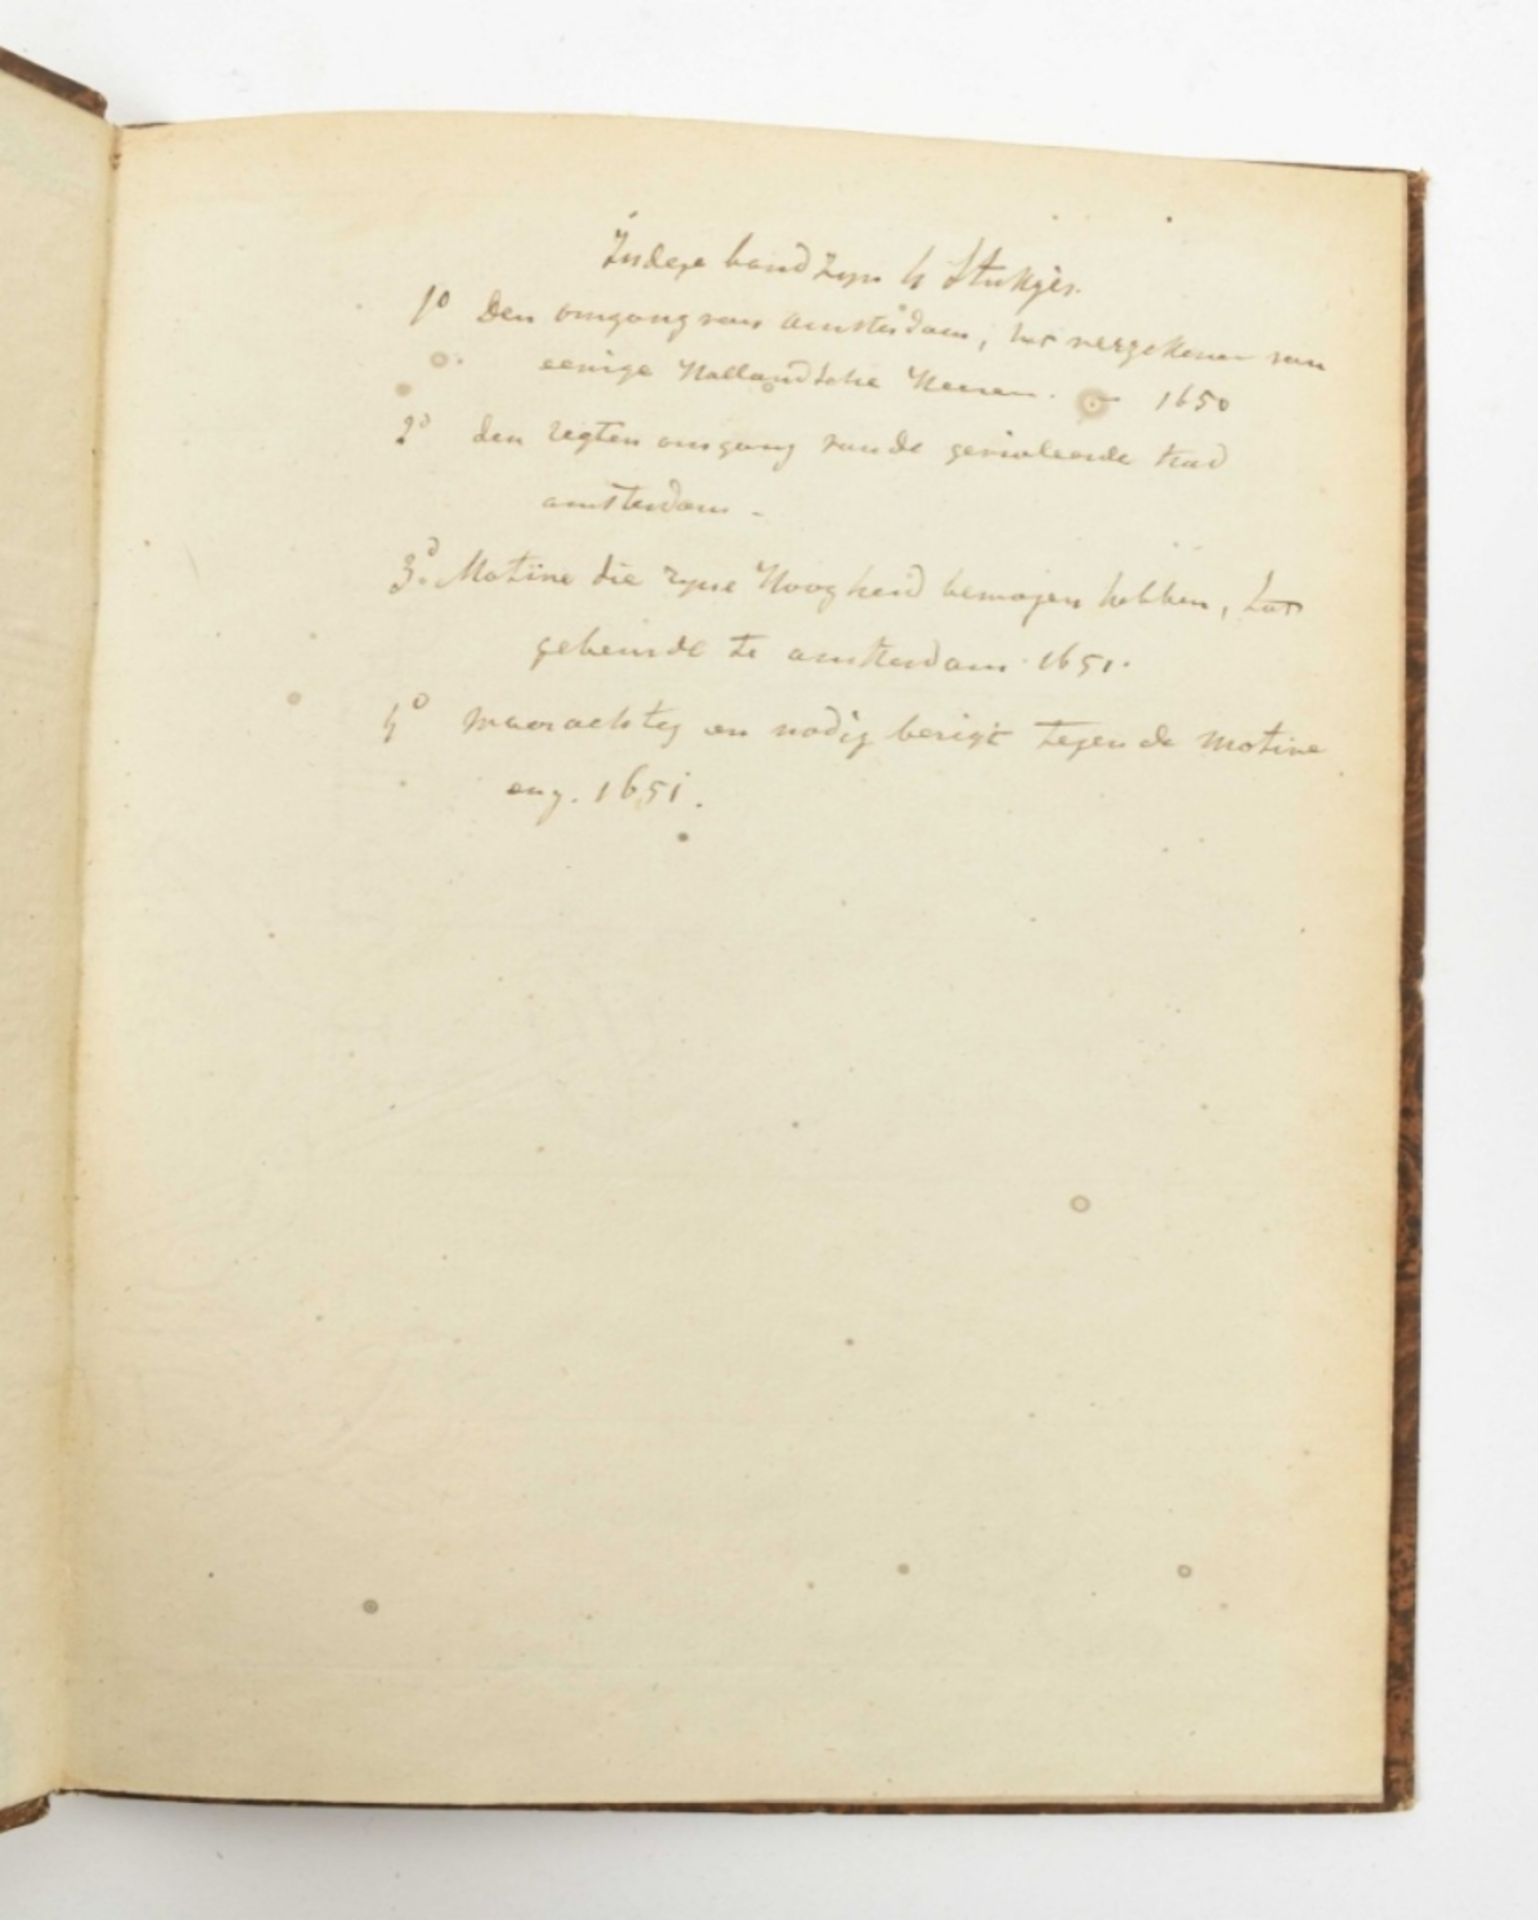 In deze band zyn 4 Stukjes.
1o Den omgang van Amsterdam, het verzekenen van
eenige Hollandsche Heeren. - 1650
2o den regten omgang van de gevioleerde stad
amsterdam -
3o. Motive die zyne Hoogheid bewogen hebben, tot
gebeurde te amsterdam 1651.
4o waarachteg en nodig berigt tegen de motive
enz. 1651.